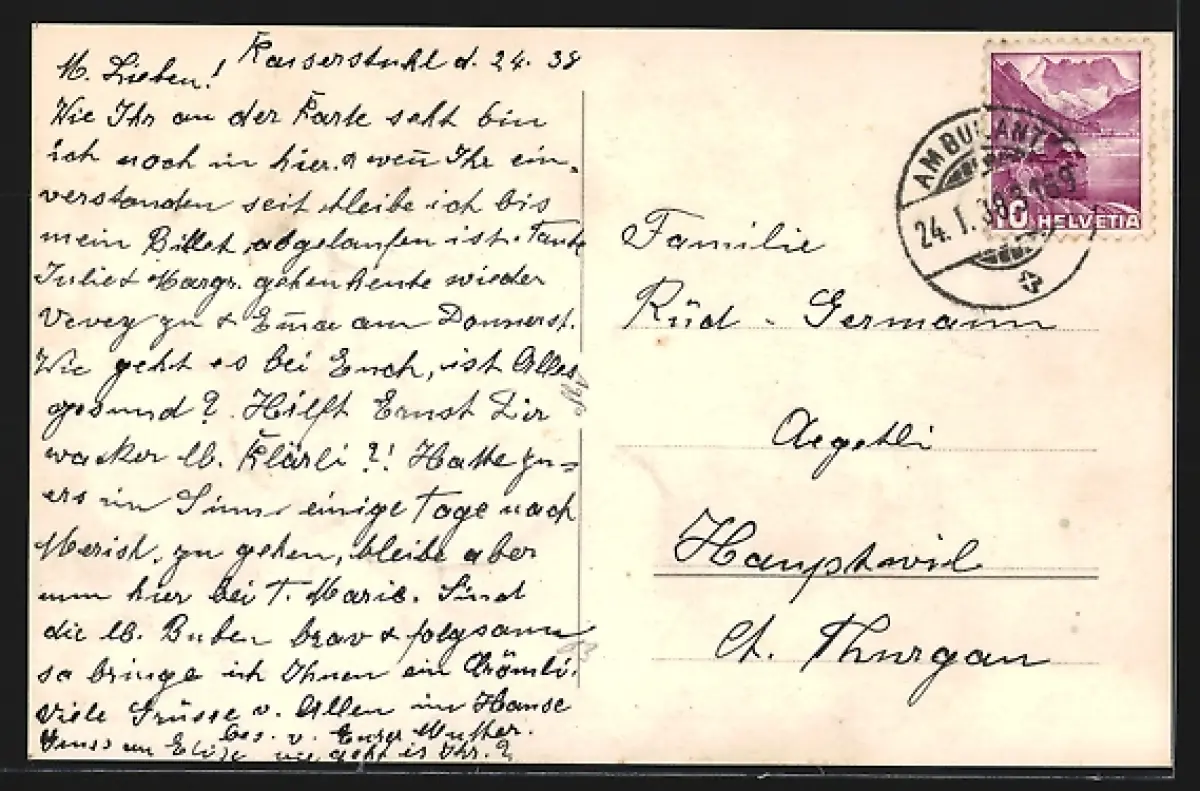 Kaiserstuhl d. 24. 38
M. Lieben!
Wie Ihr an der Karte seht bin
ich noch in hier. & wen̄ Ihr ein-
verstanden seit bleibe ich bis
mein Billet abgelaufen ist. Tante
Julie & Margr. gehen heute wieder
Vevey zu & Em̄a am Donnerst.
Wie geht es bei Euch, ist Alles
gesund? Hilft Ernst Dir
wacker lb. Klärli?! Hatte zu-
ers im Sinn einige Tage nach
zu gehen, bleibe aber
nun hier bei T. Marie. Sind
die lb. Buben brav & folgsam
so bringe ich Ihnen ein Krömli.
Viele Grüsse v. Allen im Hause
bes. v. Eurer Mutter.
Gruss an Elise wie geht es Ihr.?
AMBULANT
24. I. 38. 3169
10 HELVETIA
Familie
Rüd - Germann
Aegetli
Hauptwil
Ct. Thurgau